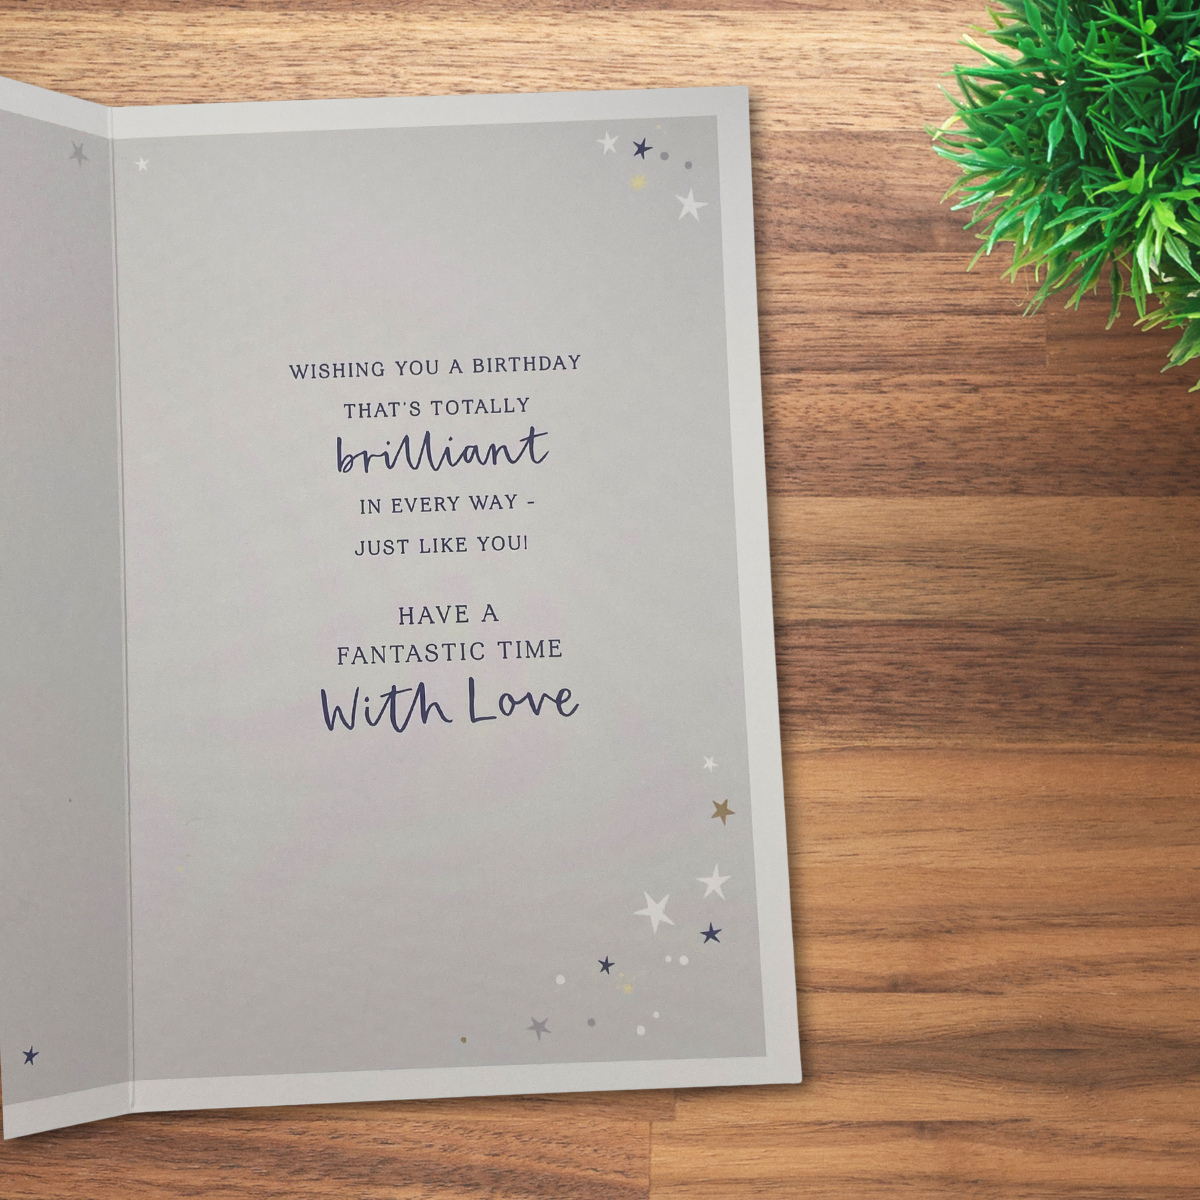 WISHING YOU A BIRTHDAY
THAT'S TOTALLY
brilliant
IN EVERY WAY -
JUST LIKE YOU!
HAVE A
FANTASTIC TIME
With Love